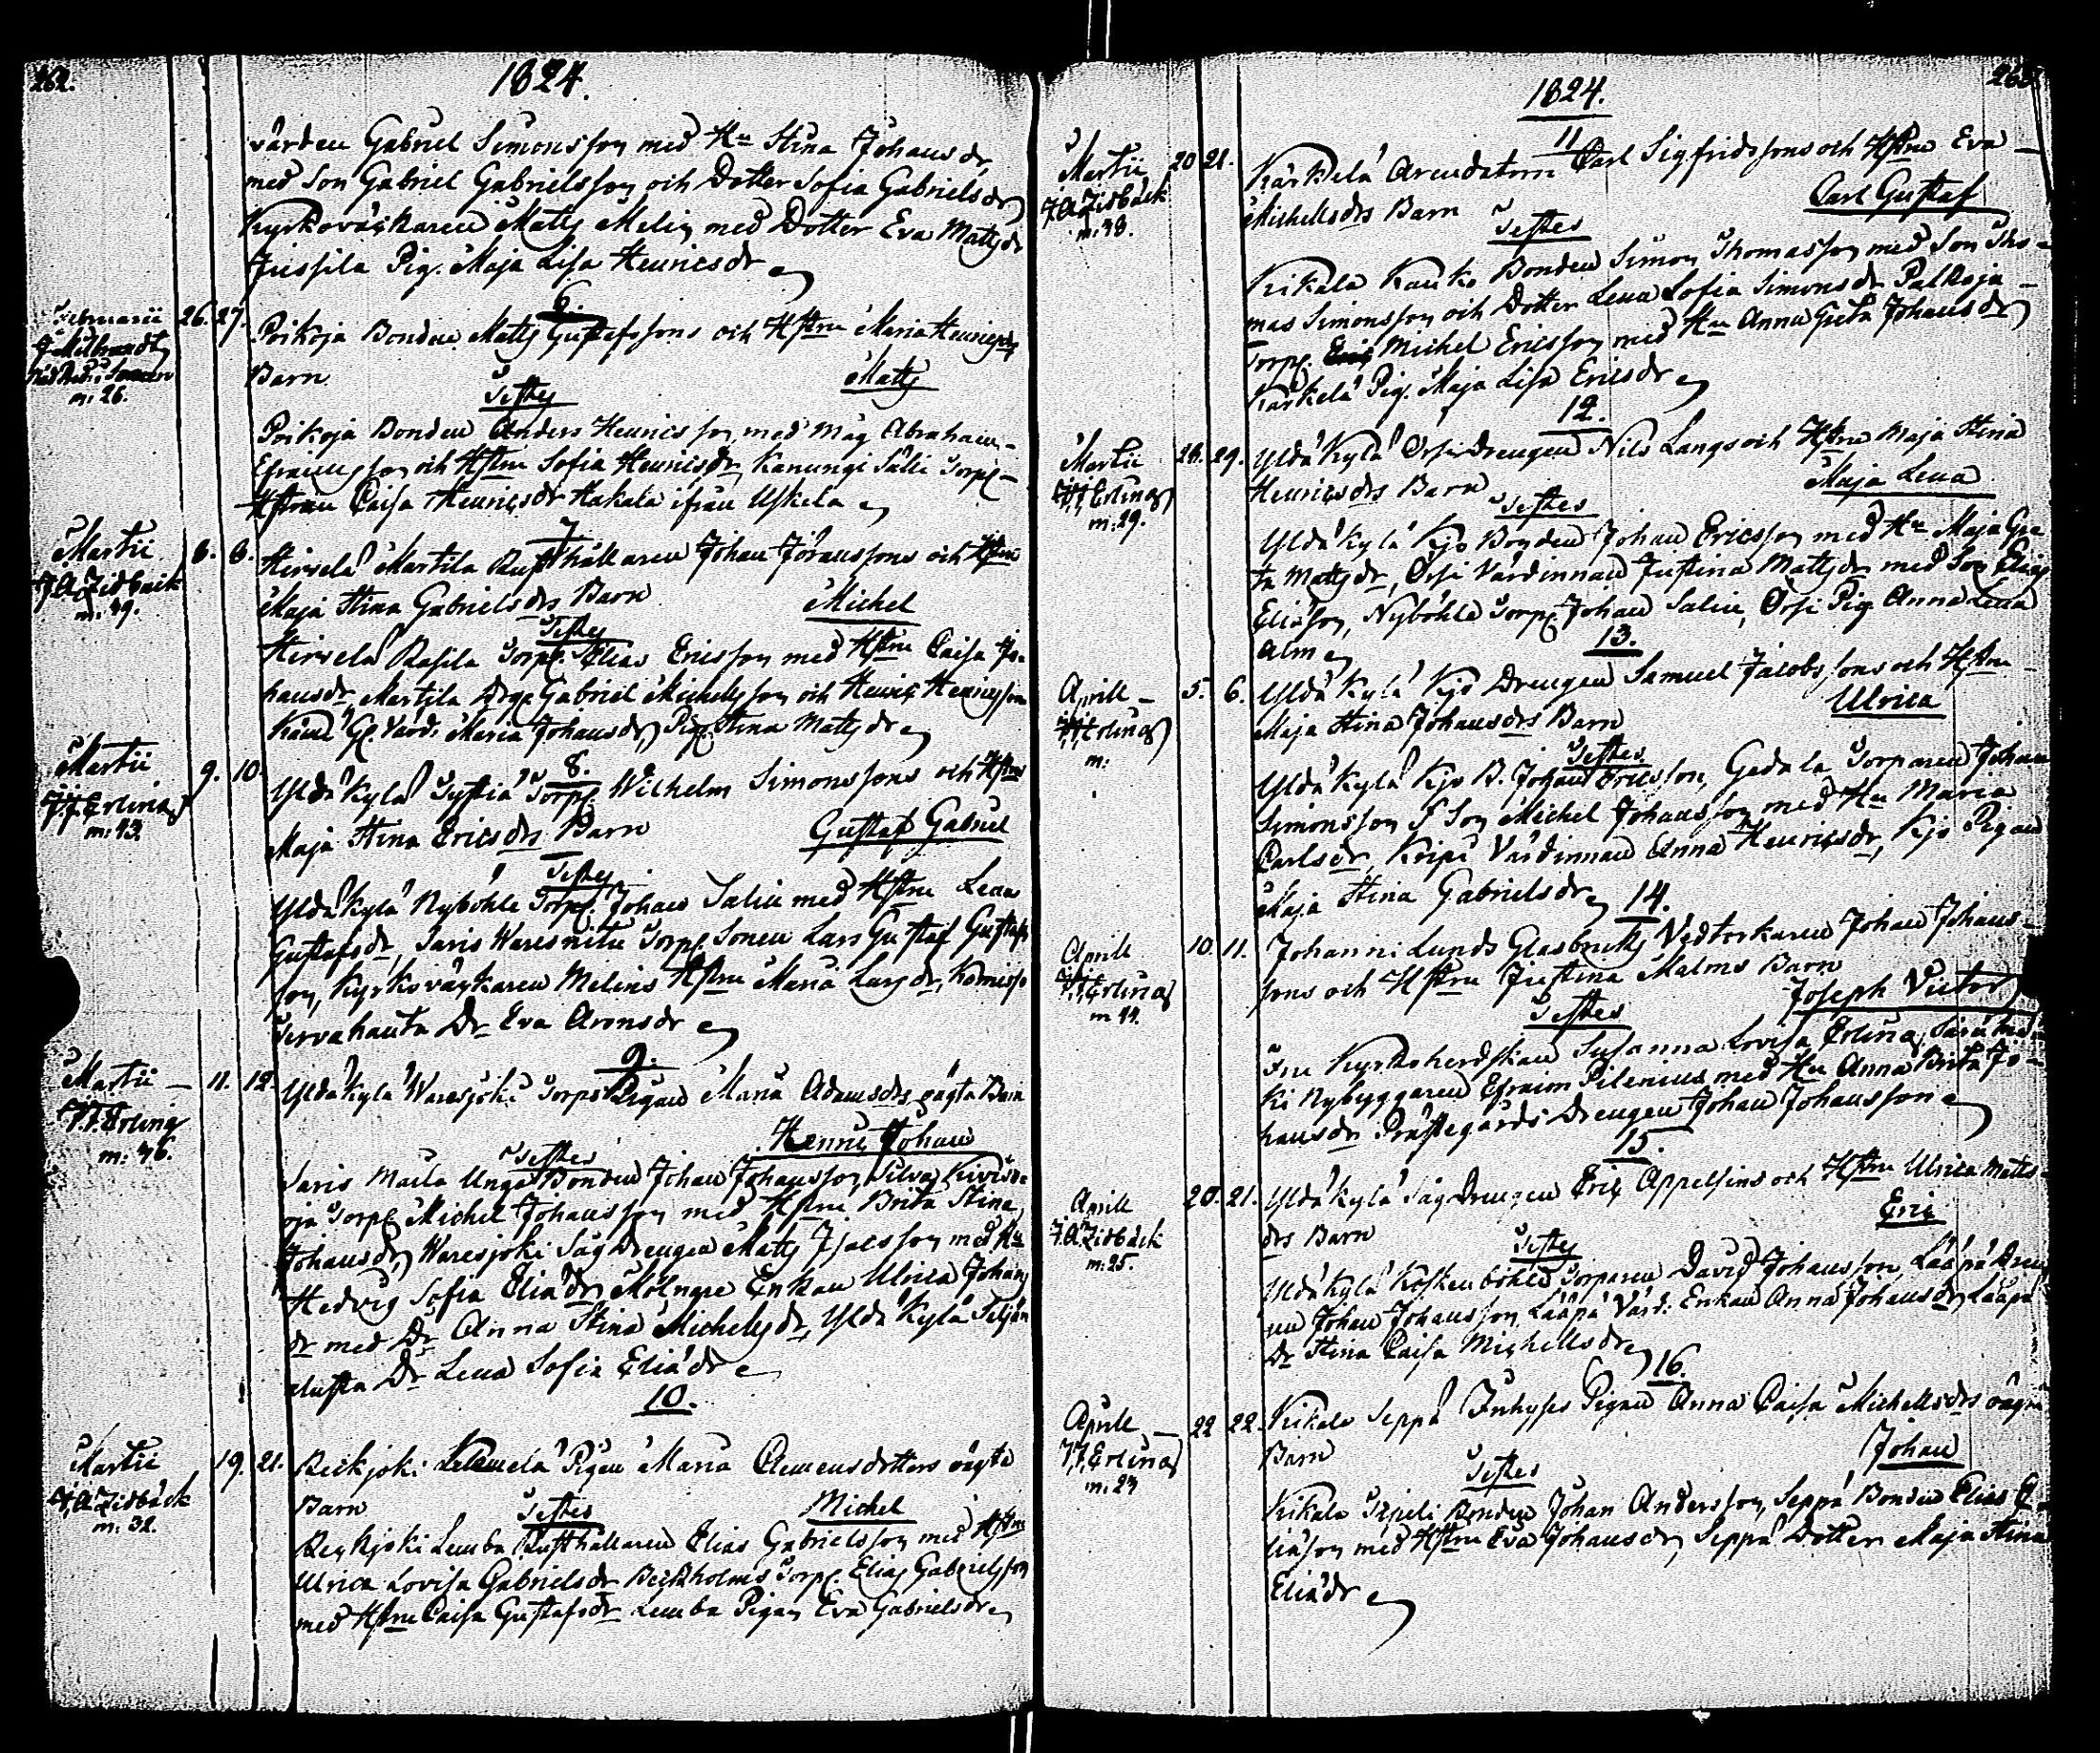 262.
1824.
vården Gabriel Simonsson med Hu Stina Johansdr
med Son Gabriel Gabrielsson och Dotter Sofia Gabrielsdr
Kyrkovägtaren Matts Melin med Dotter Eva Mattsdr
Jussila Pig. Maja Lisa Henricsdr
6.
Februarii 26. 27. Poikoja Bonden Matts Gustafssons och Hstru Maria Henricsdrs
Barn Matts
m: 26.
Testes
Poikoja Bonden Anders Henricsson med Måg Abraham
Efraimsson och Hstru Sofia Henricsdr Kanungi Sälli Torp.
Hstrun Caisa Henricsdr Hakala ifrån Uskela
7.
Martii 6. 8. Hirvelä Martila Rusthållaren Johan Göranssons och Hstru
J.A. Zidbäck
m: 49.
Maja Stina Gabrielsdrs Barn Michel
Testes
Hirvelä Rasila Torp. Elias Ericsson med Hstru Caisa Jo-
hansdr, Martila Drg. Gabriel Michelsson och Henric Henricsson
Värd. Maria Johansdr, Pig. Stina Mattsdr
8.
Martii 9. 10. Yldäkylä Torp. Wilhelm Simonssons och Hstru
J.J. Erling
m: 43.
Maja Stina Ericsdrs Barn Gustaf Gabriel
Testes
Yldäkylä Nyböhle Torp. Johan Salin med Hstru Lena
Gustafsdr, Saris Waresnitu Torp. Sonen Lars Gustaf Gustafs
son, Kyrkovägtaren Melins Hstru Maria Larsdr,
Tervahauta Dr Eva Aronsdr
9.
Martii 11. 12. Yldäkylä Waresjoki Torps Pigan Maria Adamsdrs oägta Barn
J.J. Erling
m: 46.
Henric Johan
Testes
Saris Maila Unga Bonden Johan Johansson, Silvas
oja Torp. Michel Johansson med Hstru Brita Stina
Johansdr, Waresjoki Såg Drengen Matts Isacsson med Hu
Hedvig Sofia Eliædr Enkan Ulrica Johans
dr med Dr Anna Stina Michelsdr, Yldäkylä
Dr Lena Sofia Eliædr
10.
Martii 19. 21. Reikjoki Pigan Maria Clemensdotters oägta
J.A. Zidbäck
m: 32.
Barn Michel
Testes
Reikjoki Lemba Rusthållaren Elias Gabrielsson med Hstru
Ulrica Lovisa Gabrielsdr Torp. Elias Gabrielsson
med Hstru Caisa Gustafsdr Lemba Pigan Eva Gabrielsdr
1824.
11
Martii 20 21. Kärkelä Arendatorn Carl Sigfridssons och Hstru Eva
J.A. Zidbäck
m: 38.
Michelsdrs Barn Carl Gustaf
Testes
Kikala Kauko Bonden Simon Thomasson med Son Tho-
mas Simonsson och Dotter Lena Sofia Simonsdr Palkoja
Torp. Michel Ericsson med Hu Anna Greta Johansdr
Kärkelä Pig. Maja Lisa Ericsdr
12.
Martii 28. 29. Yldäkylä Orsi Drengen Nils Langs och Hstru Maja Stina
J.J. Erling
m: 29.
Henricsdrs Barn Maja Lena
Testes
Yldäkylä Kjo Bonden Johan Ericsson med Hu Maja Gre
ta Mattsdr, Orsi Värdinnan Justina Mattsdr med Son Elias
Eliæson, Nyböhle Torp. Johan Salin, Orsi Pig. Anna Lena
Alm
13.
Aprill 5. 6. Yldäkylä Kjo Drengen Samuel Jacobssons och Hstru
J.J. Erling
m:
Maja Stina Johansdrs Barn Ulrica
Testes
Yldäkylä Kjo B. Johan Ericsson, Gedala Torparen Johan
Simonsson, Son Michel Johansson med Hu Maria
Carlsdr, Värdinnan Anna Henricsdr, Kjo Pigan
Maja Stina Gabrielsdr
14.
Aprill 10. 11. Johannislunds Glasbruks Vedtorkaren Johan Johans-
J.J. Erling
m 44.
sons och Hstru Justina Malms Barn
Joseph Victor
Testes
Fru Kyrkoherdskan Susanna Lovisa Erling,
ki Nybyggaren Efraim Pilenius med Hu Anna Brita Jo-
hansdr Prästegårds Drengen Johan Johansson
15.
Aprill 20. 21. Yldäkylä Såg Drengen Eric Appelsins och Hstru Ulrica Matts-
J.A. Zidbäck
m: 25.
drs Barn Eric
Testes
Yldäkylä Koskenböhle Torparen David Johansson, Lääpä Dren
gen Johan Johansson, Lääpä Värd. Enkan Anna Johansdr, Lääpä
Dr Stina Caisa Michelsdr
16.
Aprill 22 22. Kikala Seppä Inhyses Pigan Anna Caisa Michelsdrs oägta
J.J. Erling
m: 23
Barn Johan
Testes
Kikala Bonden Johan Andersson, Seppä Bonden Elias E-
liæson med Hstru Eva Johansdr, Seppä Dotter Maja Stina
Eliædr